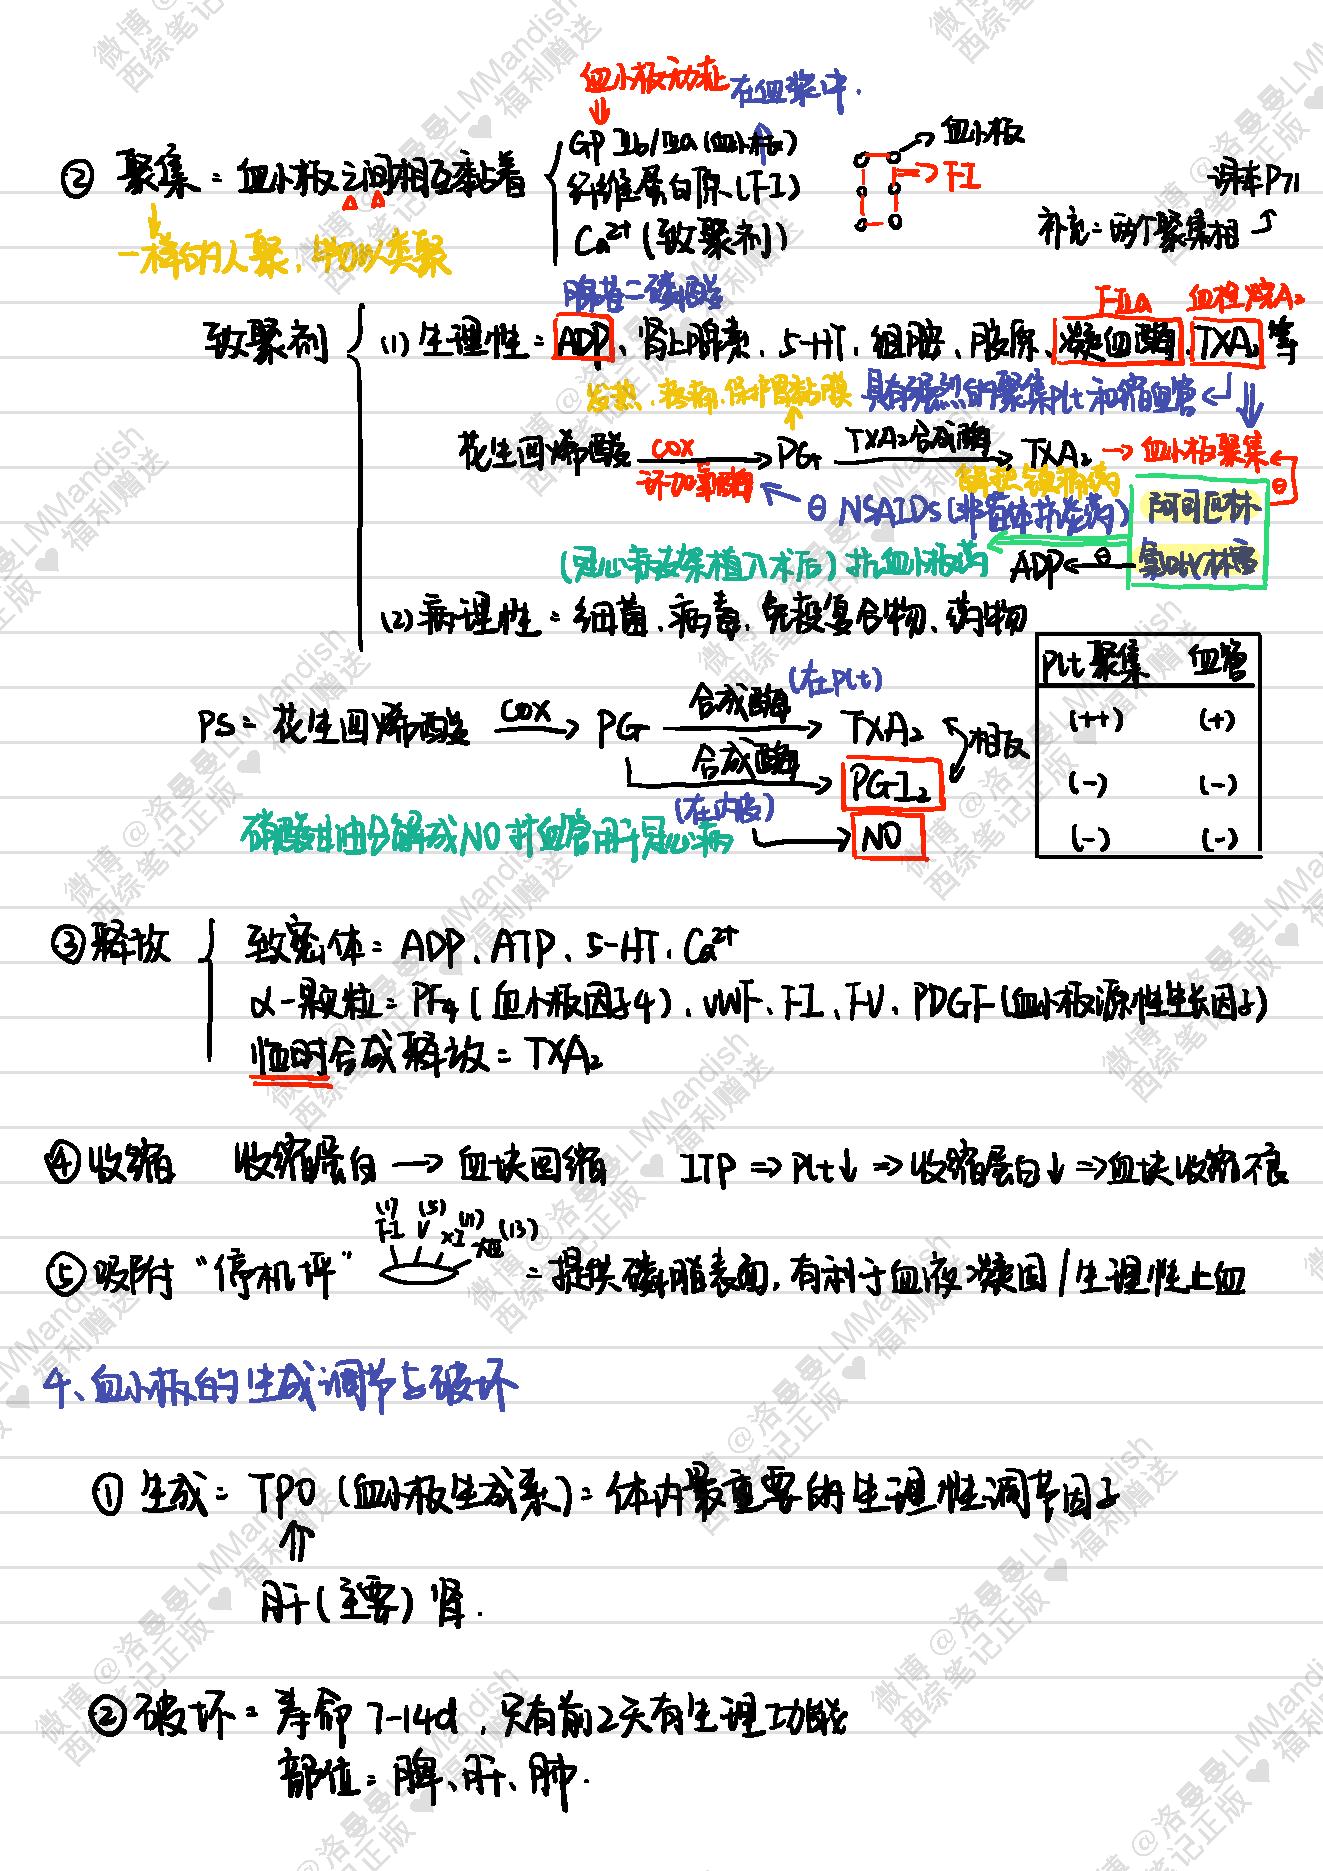 血小板无力症 在血浆中.
② 聚集: 血小板之间相互黏着
GPⅡb/Ⅲa(血小板)
纤维蛋白原(FI)
Ca²⁺(致聚剂)
→血小板
→FI
课本P71
补充: 两个聚集相
一样的人聚, 物以类聚
腺苷二磷酸 FⅡa 血栓烷A₂
致聚剂 (1) 生理性: ADP、肾上腺素、5-HT、组胺、胶原、凝血酶、TXA₂等
发热、疼痛、保护胃黏膜 具有强烈的聚集Plt和缩血管
花生四烯酸 COX 环加氧酶 → PG TXA₂合成酶 → TXA₂ → 血小板聚集
解热镇痛药
⊖ NSAIDs(非甾体抗炎药) 阿司匹林 ⊖
(冠心病支架植入术后)抗血小板药 ADP ← ⊖ 氯吡格雷
(2) 病理性: 细菌、病毒、免疫复合物、药物
Plt聚集 血管
(++) (+)
(-) (-)
(-) (-)
PS: 花生四烯酸 COX → PG 合成酶 (在Plt) → TXA₂ 相反
合成酶 (在内皮) → PGI₂
硝酸甘油分解成NO扩血管用于冠心病 → NO
③ 释放 致密体: ADP、ATP、5-HT、Ca²⁺
α-颗粒: PF₄(血小板因子4)、vWF、FI、FV、PDGF(血小板源性生长因子)
临时合成释放: TXA₂
④ 收缩 收缩蛋白 → 血块回缩 ITP ⇒ Plt↓ ⇒ 收缩蛋白↓ ⇒ 血块收缩不良
(1) (5) (11) (13)
FI V XI XⅢ
⑤ 吸附 "停机坪" = 提供磷脂表面, 有利于血液凝固/生理性止血
4、血小板的生成调节与破坏
① 生成: TPO(血小板生成素): 体内最重要的生理性调节因子
⇑
肝(主要) 肾.
② 破坏: 寿命 7-14d, 只有前2天有生理功能
部位: 脾、肝、肺.
微博@洛曼曼LMMandish
西综笔记正版♥福利赠送